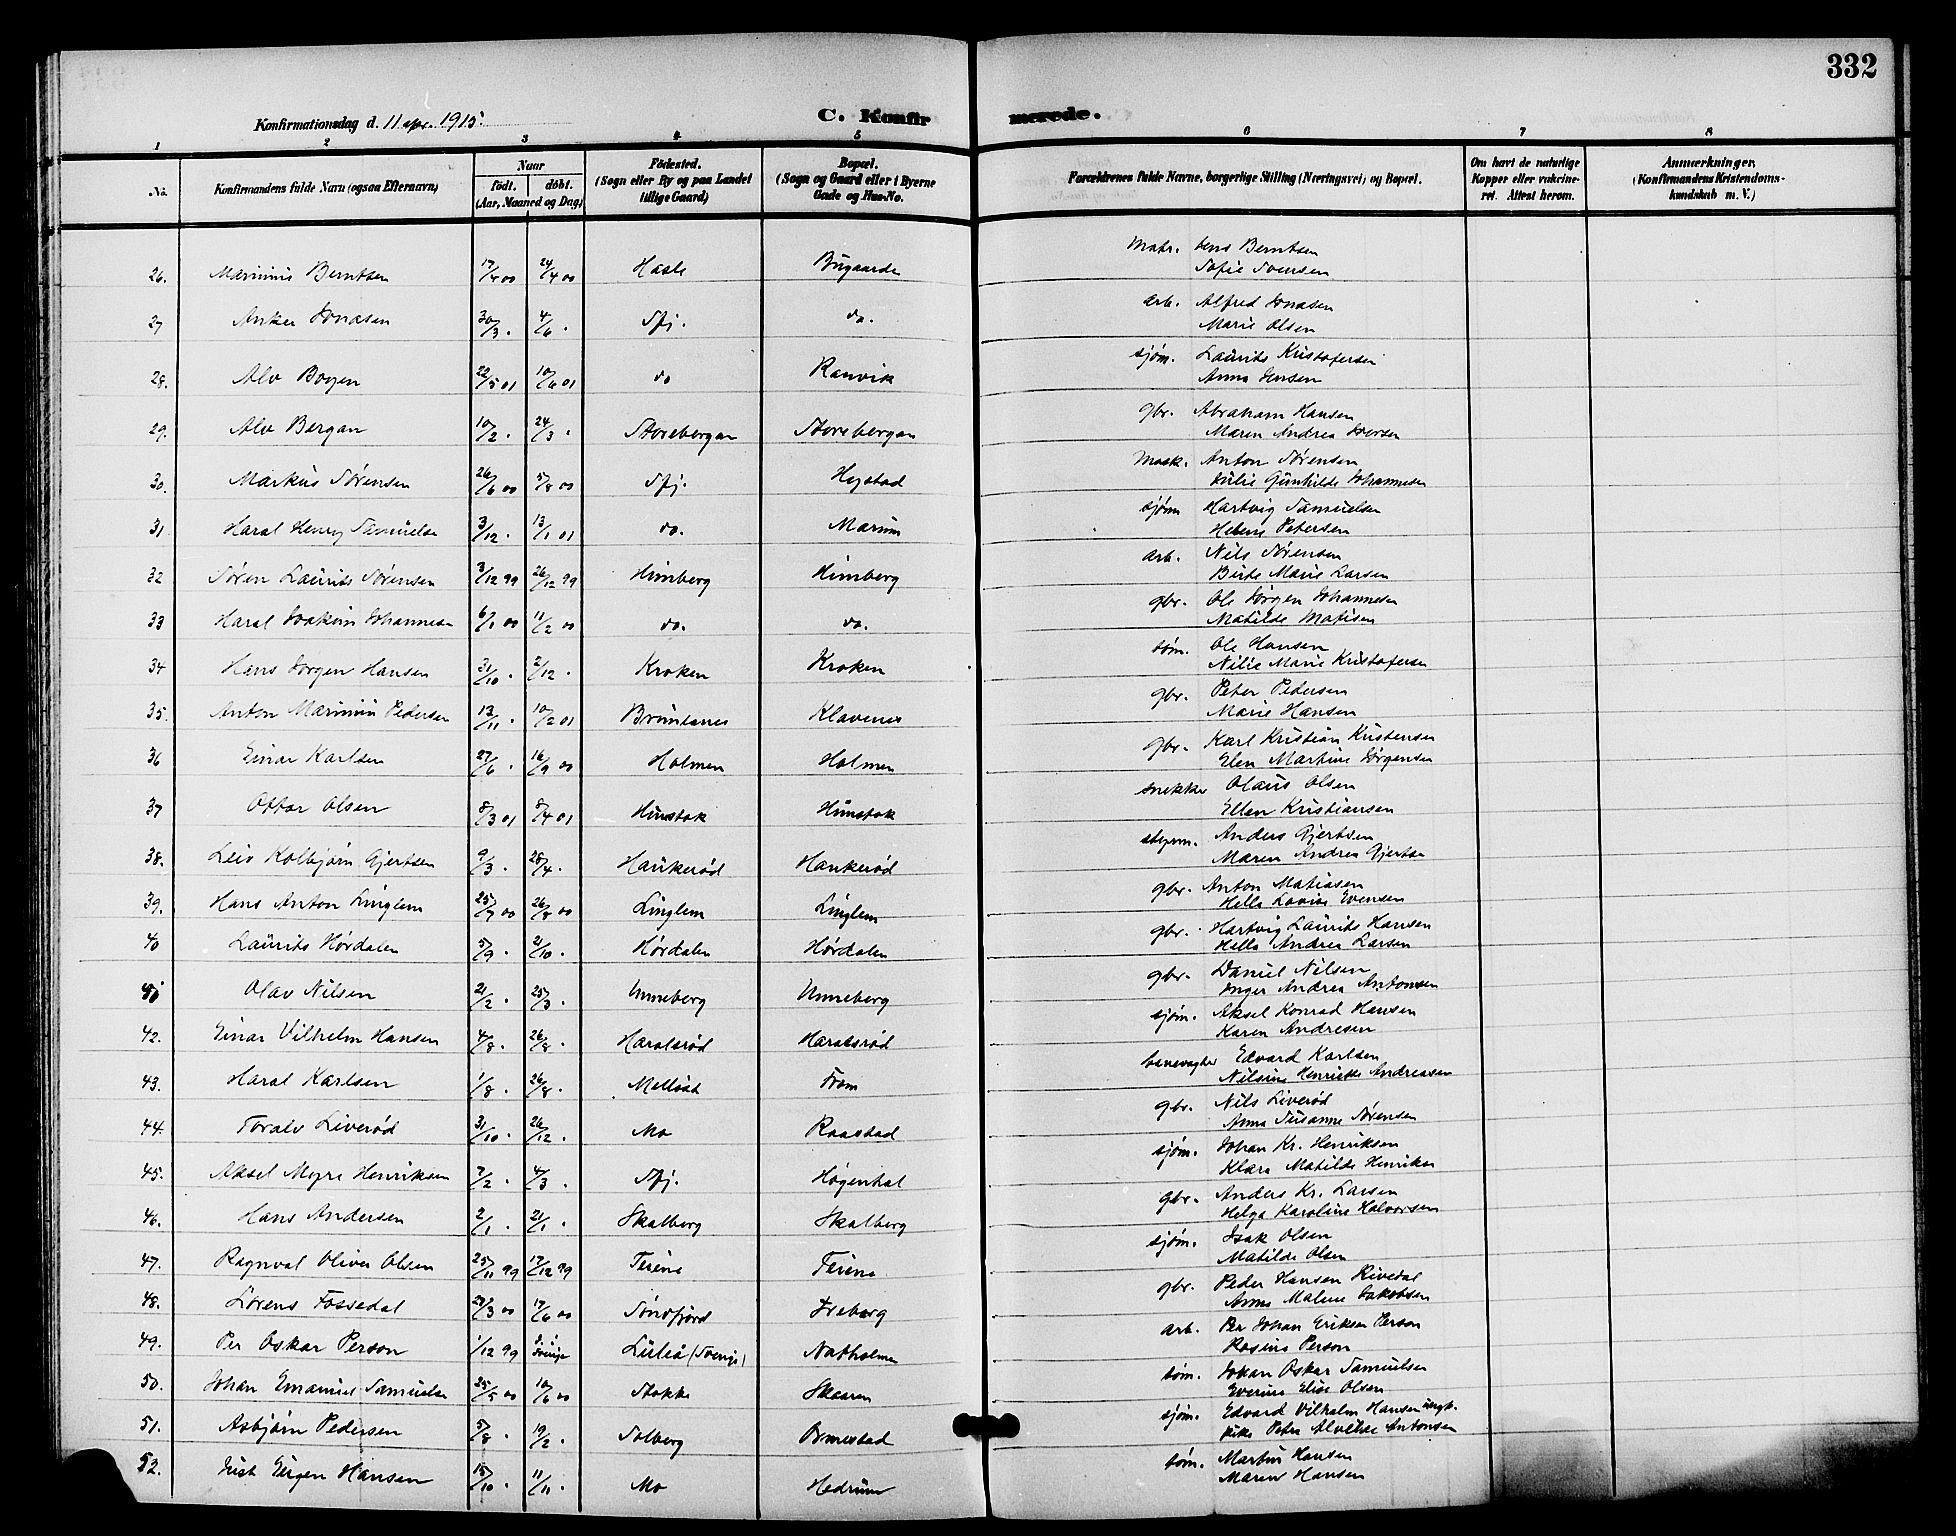 332
Konfirmationsdag d. 11 apr. 1915.
C. Konfirmerede.
1 2 3 4 5 6 7 8
No.
Konfirmandens fulde Navn (ogsaa Efternavn)
Naar
födt. döbt.
(Aar, Maaned og Dag)
Födested.
(Sogn eller By og paa Landet
tillige Gaard)
Bopæl.
(Sogn og Gaard eller i Byerne
Gade og Hus-No.
Forældrenes fulde Navne, borgerlige Stilling (Næringsvei) og Bopæl.
Om havt de naturlige
Kopper eller vakcine-
ret. Attest herom.
Anmærkninger,
(Konfirmandens Kristendoms-
kundskab m. V.)
26. Marinius Berntsen 17/4 00 24/4 00 Hasle Bugaarden Matr. Jens Berntsen
Sofie Svensen
27 Anker Jonasen 30/3 . 4/6 . Sfj. do. arb. Alfred Jonasen
Marie Olsen
28. Alv Bogen 22/5 01 10/6 01 do Ranvik sjøm. Laurits Kristofersen
Anna Jensen
29. Alv Bergan 10/2 . 24/3 . Storebergan Storebergan gbr. Abraham Hansen
Maren Andrea Iversen
30. Markus Sørensen 26/6 00 5/8 00 Sfj. Hystad Mask. Anton Sørensen
Julie Gunhilde Johannesen
31. Haral Henry Samuelse 3/12 . 13/1 01 do. Marum sjøm Hartvig Samuelsen
Helene Petersen
32 Søren Laurits Sørensen 3/12 99 26/12 99 Himberg Himberg arb. Nils Sørensen
Birte Marie Larsen
33 Haral Joakim Johannesen 6/1 00 11/2 00 do. do. gbr. Ole Jørgen Johannesen
Matilde Matisen
34 Hans Jørgen Hansen 31/10 . 2/12 . Kroken Kroken tøm. Ole Hansen
Nilie Marie Kristofersen
35. Anton Marinius Pedersen 13/11 . 10/2 01 Bruntanes Klavenes gbr. Peter Pedersen
Marie Hansen
36 Einar Karlsen 27/6 . 16/9 00 Holmen Holmen gbr. Karl Kristian Kristensen
Elen Martine Jørgensen
37 Ottar Olsen 8/3 01 8/4 01 Hunstok Hunstok snekker Olaus Olsen
Ellen Kristiansen
38. Leiv Kolbjørn Gjertsen 9/3 . 28/4 . Haukerød Haukerød styrm. Anders Gjertsen
Maren Andrea Gjertse
39. Hans Anton Linglem 25/7 00 26/8 00 Linglem Linglem gbr. Anton Matiasen
Hella Lovise Evensen
40 Laurits Hørdalen 5/9 . 21/10 . Hørdalen Hørdalen gbr. Hartvig Laurits Hansen
Hella Andrea Larsen
41 Olav Nilsen 21/2 . 25/3 . Unneberg Unneberg gbr. Daniel Nilsen
Inger Andrea Antonsen
42. Einar Vilhelm Hansen 4/8 . 26/8 . Haralsrød Haralsrød sjøm. Aksel Konrad Hansen
Karen Andresen
43. Haral Karlsen 1/8 . 26/8 . Melløst Fram banevagter Edvard Karlsen
Nilsine Henriette Andreasen
44. Toralv Liverød 31/10 . 26/12 . Mo Raastad gbr. Nils Liverød
Anna Susanne Sørensen
45. Aksel Myre Henriksen 7/2 . 4/3 . Sfj. Høgenhal sjøm. Johan Kr. Henriksen
Klara Matilde Henrikse
46. Hans Andersen 2/1 . 21/1 . Skalberg Skalberg gbr. Anders Kr. Larsen
Helga Karoline Halvorsen
47. Ragnval Oliver Olsen 25/11 99 17/12 99 Terene Terene sjøm. Isak Olsen
Matilde Olsen
48. Lorens Fossedal 29/3 00 17/6 00 Søndfjord Freberg gbr. Peder Hansen Rivedal
Anna Maline Jakobsen
49. Per Oskar Person 1/12 99 i Sverige Luleå (Sverige) Natholmen arb. Per Johan Eriksen Person
Rosine Person
50. Johan Emanuel Samuelse 25/5 00 10/6 00 Stokke Skaaren tøm. Johan Oskar Samuelsen
Everine Elise Olsen
51. Asbjørn Pedersen 5/8 . 19/2 . Solberg Ormestad sjøm. Edvard Vilhelm Hansen ungk.
pike Petra Alvilde Antonsen
52. Just Jørgen Hansen 15/10 . 11/11 . Mo Hedrum tøm. Martin Hansen
Maren Hansen